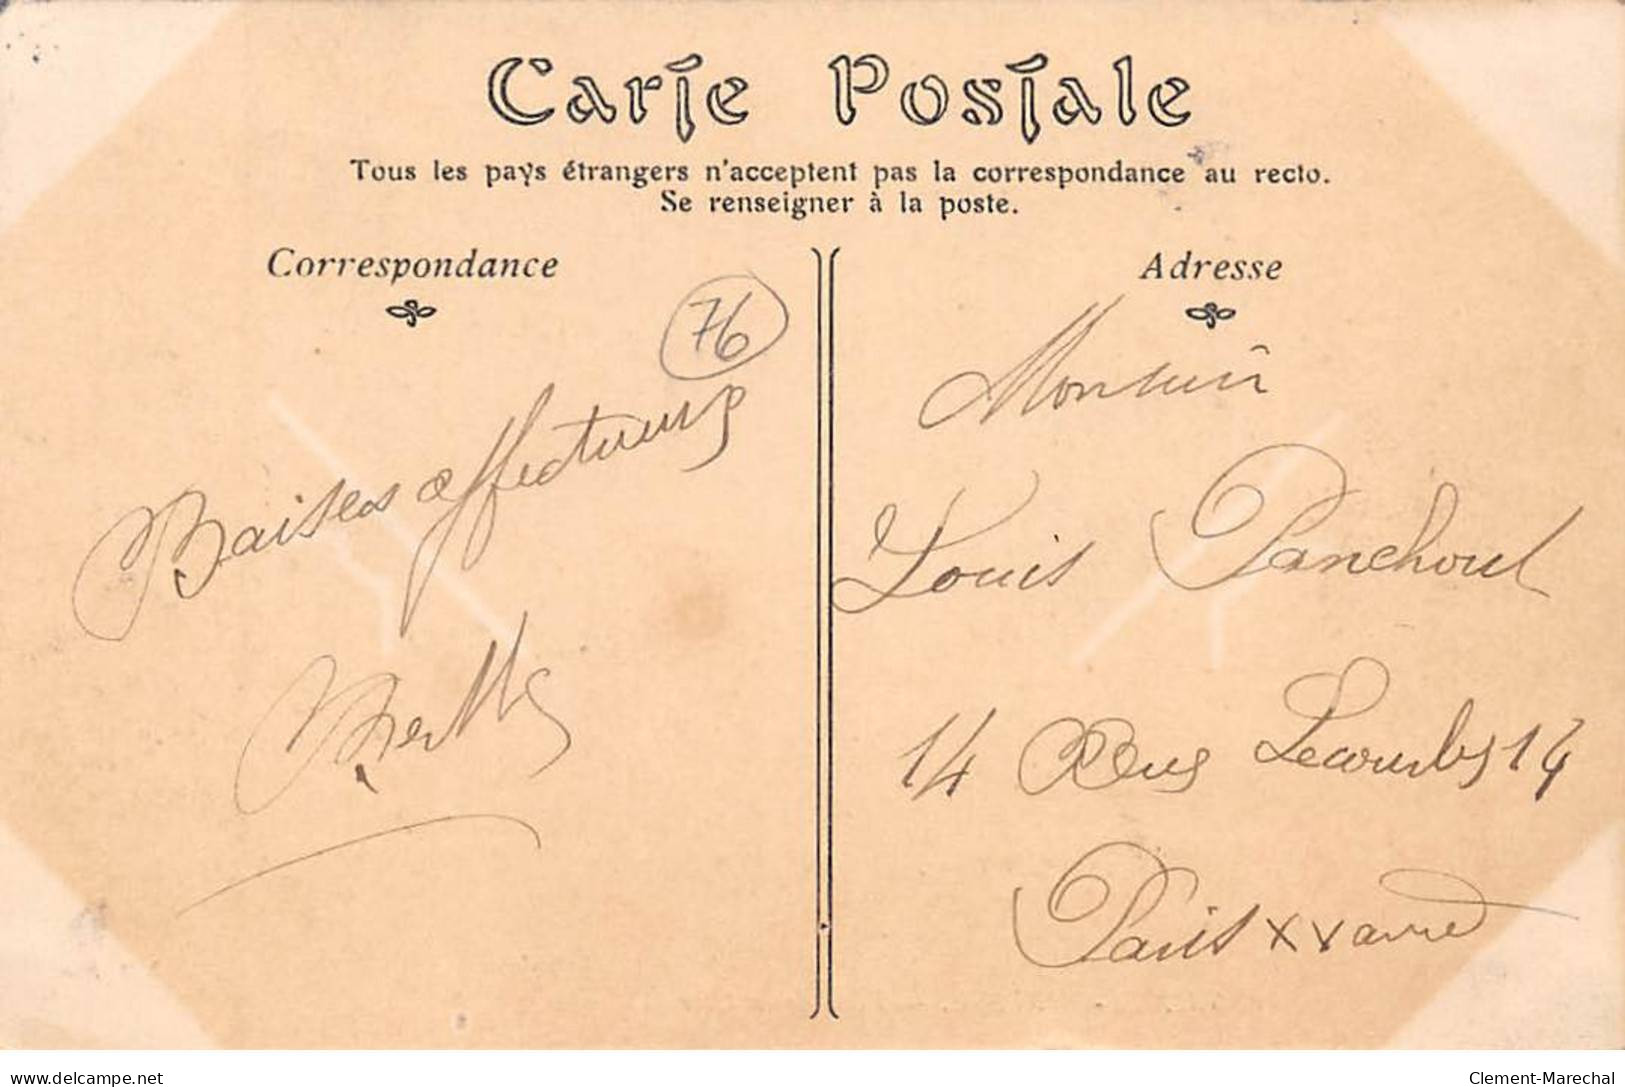 Carte Postale
Tous les pays étrangers n'acceptent pas la correspondance au recto.
Se renseigner à la poste.
Correspondance
76
Baises affectueuses
Berthe
Adresse
Monsieur
Louis Panchout
14 Rue Lecourbe 14
Paris XV arrd
delcampe.net
Clement-Marechal